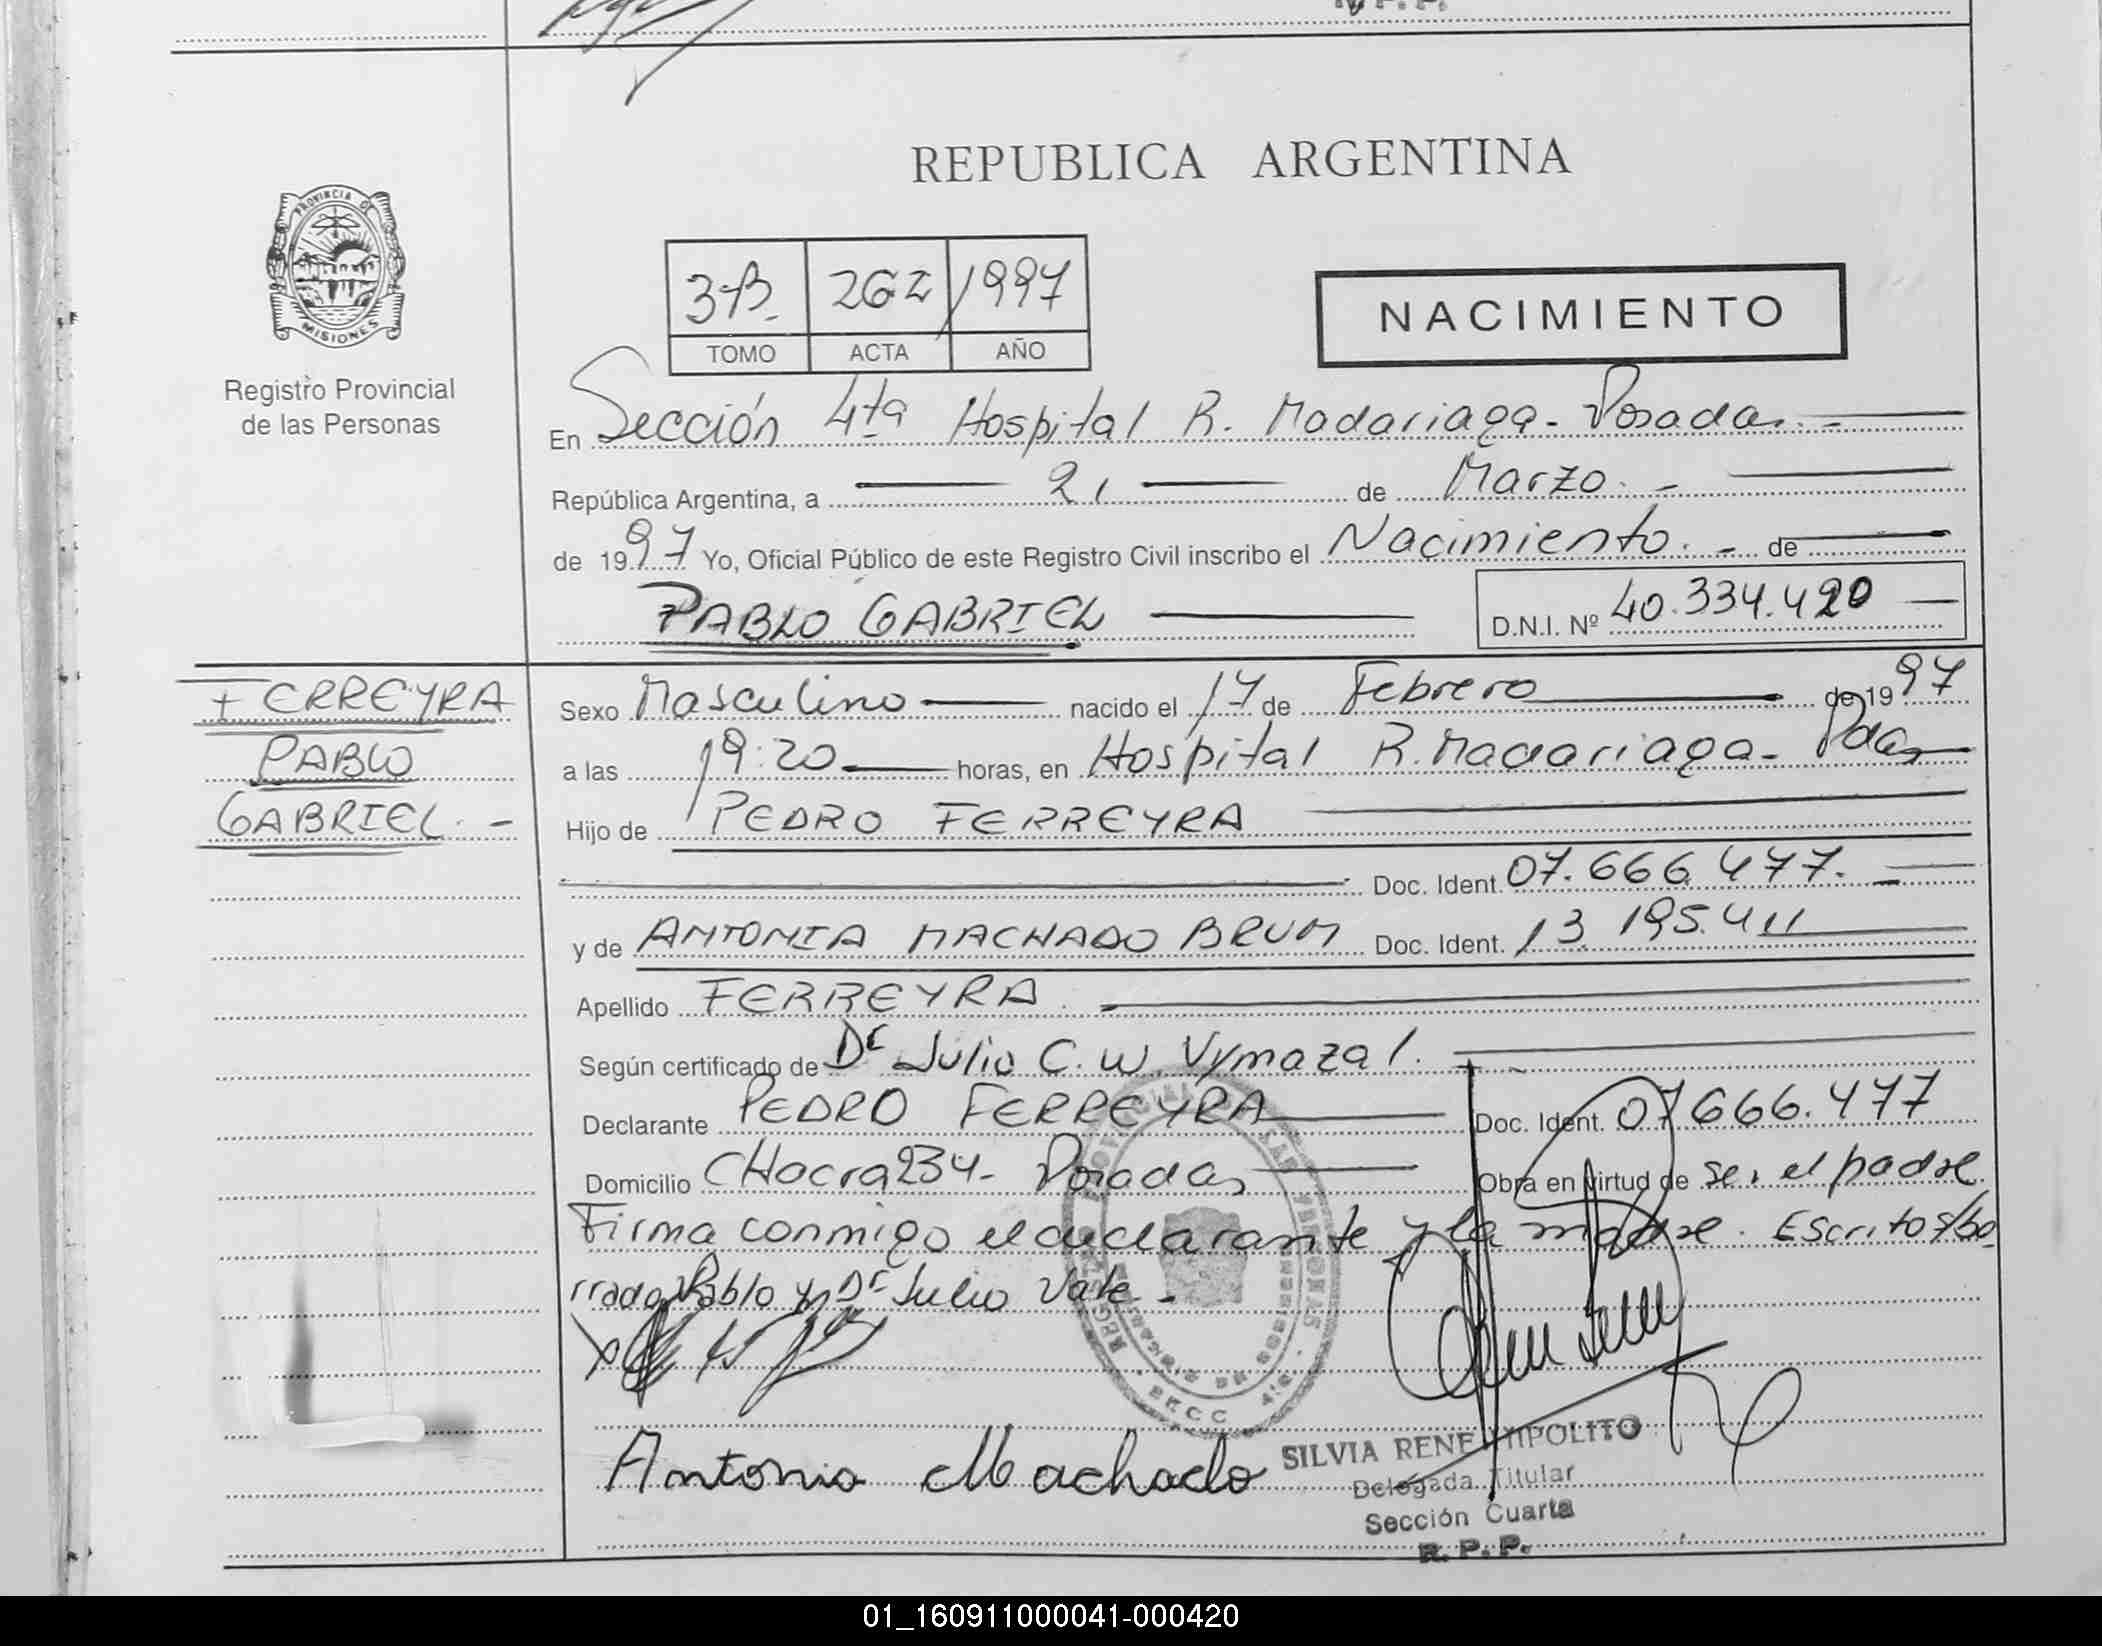 REPUBLICA ARGENTINA
PROVINCIA DE MISIONES
Registro Provincial
de las Personas
3-B 262 1997
TOMO ACTA AÑO
NACIMIENTO
En Sección 4ta Hospital R. Madariaga - Posadas. -
República Argentina, a 21 de Marzo. -
de 1997 Yo, Oficial Público de este Registro Civil inscribo el Nacimiento. - de
PABLO GABRIEL D.N.I. Nº 40.334.420
FERREYRA
PABLO
GABRIEL. -
Sexo Masculino nacido el 17 de Febrero de 1997
a las 19:20 horas, en Hospital R. Madariaga - Pdas
Hijo de PEDRO FERREYRA
Doc. Ident. 07.666.477. -
y de ANTONIA MACHADO BRUM Doc. Ident. 13.195.411
Apellido FERREYRA. -
Según certificado de Dr Julio C. W. Vymazal.
Declarante PEDRO FERREYRA Doc. Ident. 07666.477
Domicilio CHacra 234 - Posadas Obra en virtud de ser el padre
Firma conmigo el declarante y la madre. Escrito s/bo
rrado Pablo y Dr Julio Vale -
Antonia Machado
SILVIA RENE HIPOLITO
Delegada Titular
Sección Cuarta
R. P. P.
01_160911000041-000420